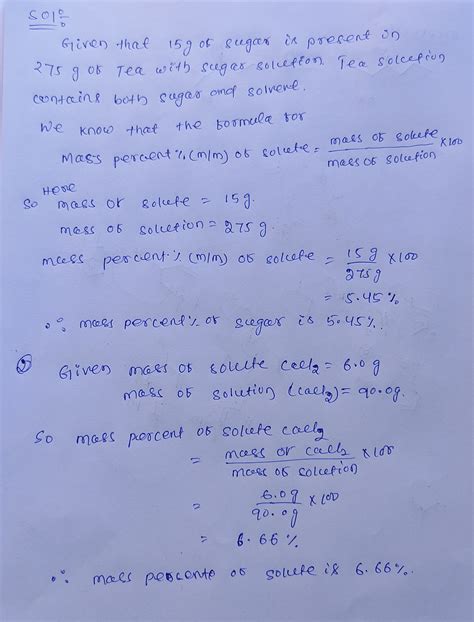 Sol:
Given that 15g of sugar is present in
275 g of Tea with sugar solution. Tea solution
contains both sugar and solvent.
We know that the formula for
Mass percent % (m/m) of solute = mass of solute / mass of solution × 100
Here
so mass of solute = 15g.
mass of solution = 275 g.
mass percent % (m/m) of solute = 15 g / 275 g × 100
= 5.45 %
∴ mass percent % of sugar is 5.45 %.
② Given mass of solute CaCl2 = 6.0 g
mass of solution (CaCl2) = 90.0g.
So mass percent of solute CaCl2
= mass of CaCl2 / mass of solution × 100
= 6.0 g / 90.0 g × 100
= 6.66 %
∴ mass percente of solute is 6.66 %.